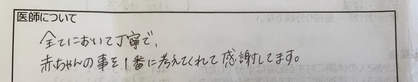 医師について
全てにおいて丁寧で、
赤ちゃんの事を1番に考えてくれて感謝してます。